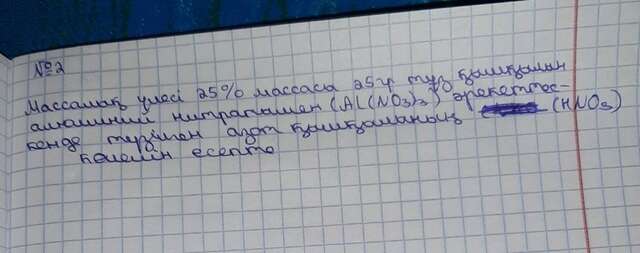 №2
Массалық үлесі 25% массаса 25гр тұз қышқылын
алюминий нитратымен (Al(NO3)3) әрекеттес-
кенде түзілген азот қышқылының (HNO3)
көлемін есепте